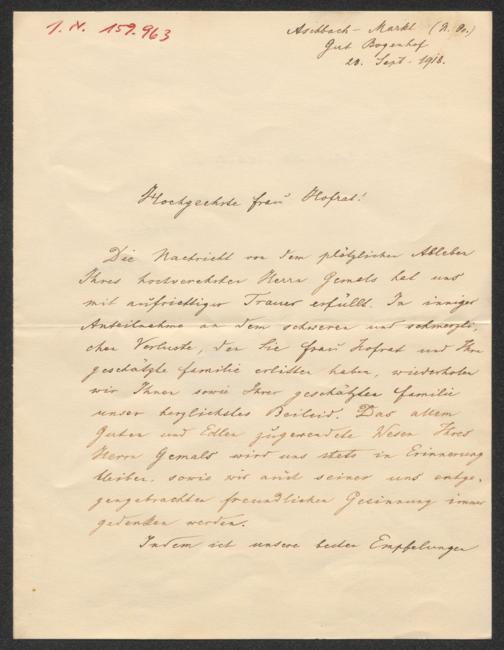 I. N. 159.963
Aschbach - Markt (N. Oe.)
Gut Bogenhof
20. Sept. 1918.
Hochgeehrte Frau Hofrat!
Die Nachricht von dem plötzlichen Ableben
Ihres hochverehrten Herrn Gemals hat uns
mit aufrichtiger Trauer erfüllt. In inniger
Anteilnahme an dem schweren und schmerzli-
chen Verluste, den Sie Frau Hofrat und Ihre
geschätzte Familie erlitten haben, wiederholen
wir Ihnen sowie Ihrer geschätzten Familie
unser herzlichstes Beileid. Das allem
Guten und Edlen zugewendete Wesen Ihres
Herrn Gemals wird uns stets in Erinnerung
bleiben, sowie wir auch seiner uns entge-
gengebrachten freundlichen Gesinnung immer
gedenken werden.
Indem ich unsere besten Empfelungen